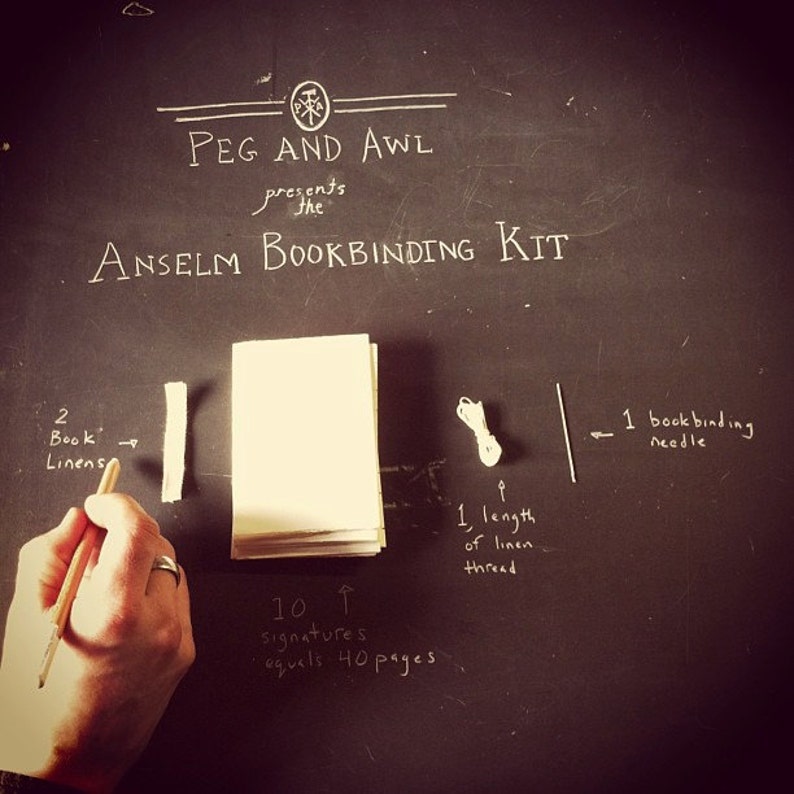 P A
PEG AND AWL
presents
the
ANSELM BOOKBINDING KIT
2
Book
Linens
10
signatures
equals 40 pages
1 length
of linen
thread
1 bookbinding
needle